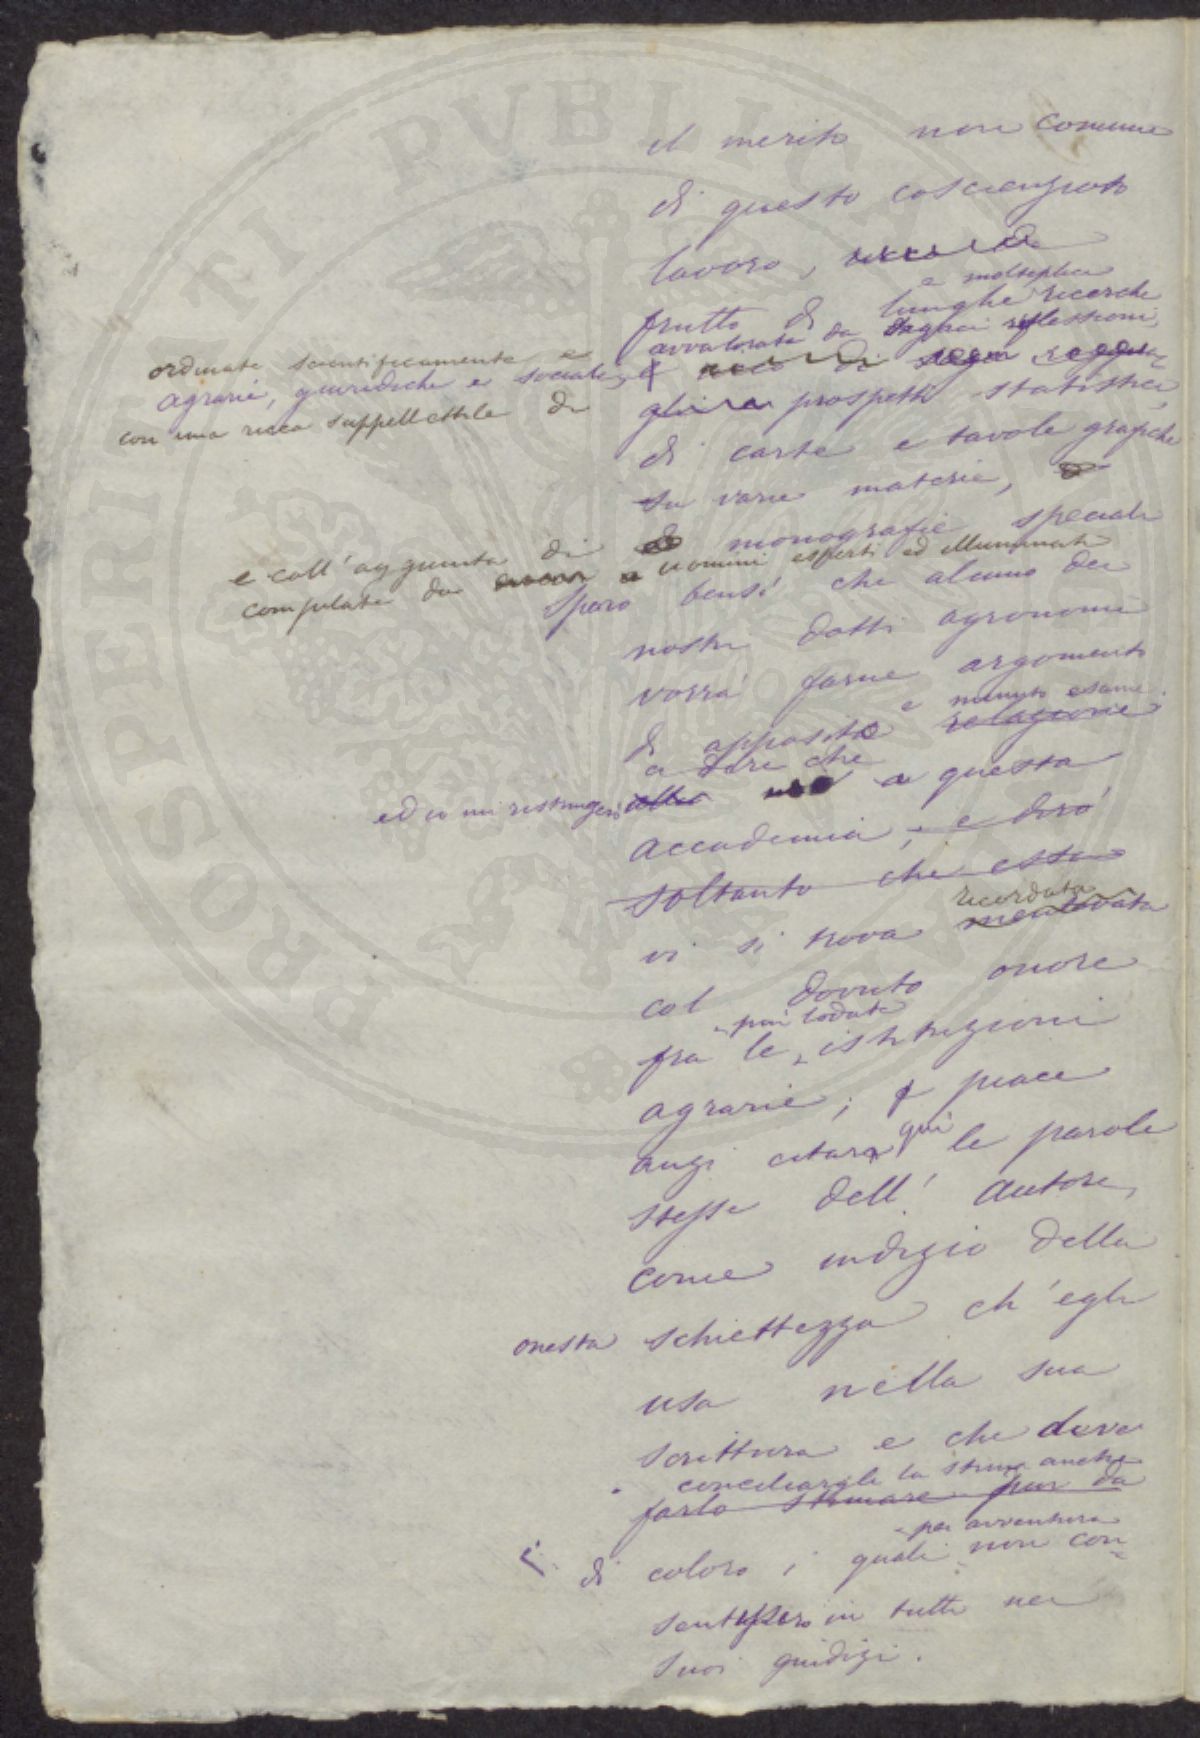 il merito non comune
di questo coscienzioso
lavoro,
e molteplici
frutto di lunghe ricerche
avvalorate da sagaci riflessioni,
ordinate scientificamente e
agrarie, giuridiche e sociali,
con una ricca suppellettile di
prospetti statistici,
di carte e tavole grafiche
su varie materie,
e coll'aggiunta di monografie speciali
compilate da uomini esperti ed illuminati
Spero bensì che alcuno dei
nostri dotti agronomi
vorrà farne argomento
e minuto esame.
di apposito relazione
a dire che
ed io mi restringerò a questa
Accademia, e dirò
soltanto che essa
ricordata
vi si trova mentovata
col dovuto onore
più lodate
fra le istituzioni
agrarie; piace
qui
anzi citare le parole
stesse dell'autore,
come indizio della
onesta schiettezza ch'egli
usa nella sua
scrittura e che deve
conciliargli la stima anche
farlo stimare pur da
per avventura
di coloro, i quali non con-
sentissero in tutti nei
suoi giudizi.
PROSPERITATI PVBLICAE